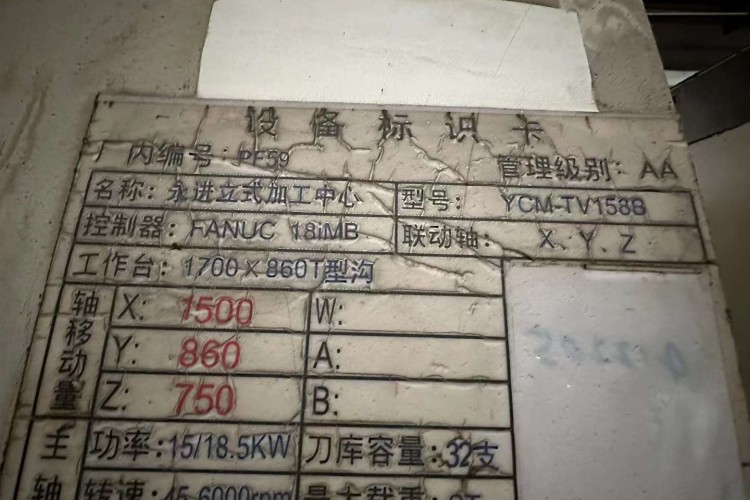 设备标识卡
厂内编号: PF59 管理级别: AA
名称: 永进立式加工中心 型号: YCM-TV158B
控制器: FANUC 18iMB 联动轴: X、Y、Z
工作台: 1700×860T型沟
轴移动量 X: 1500 W:
Y: 860 A:
Z: 750 B:
主轴 功率: 15/18.5KW 刀库容量: 32支
转速: 45-6000rpm 最大载重: